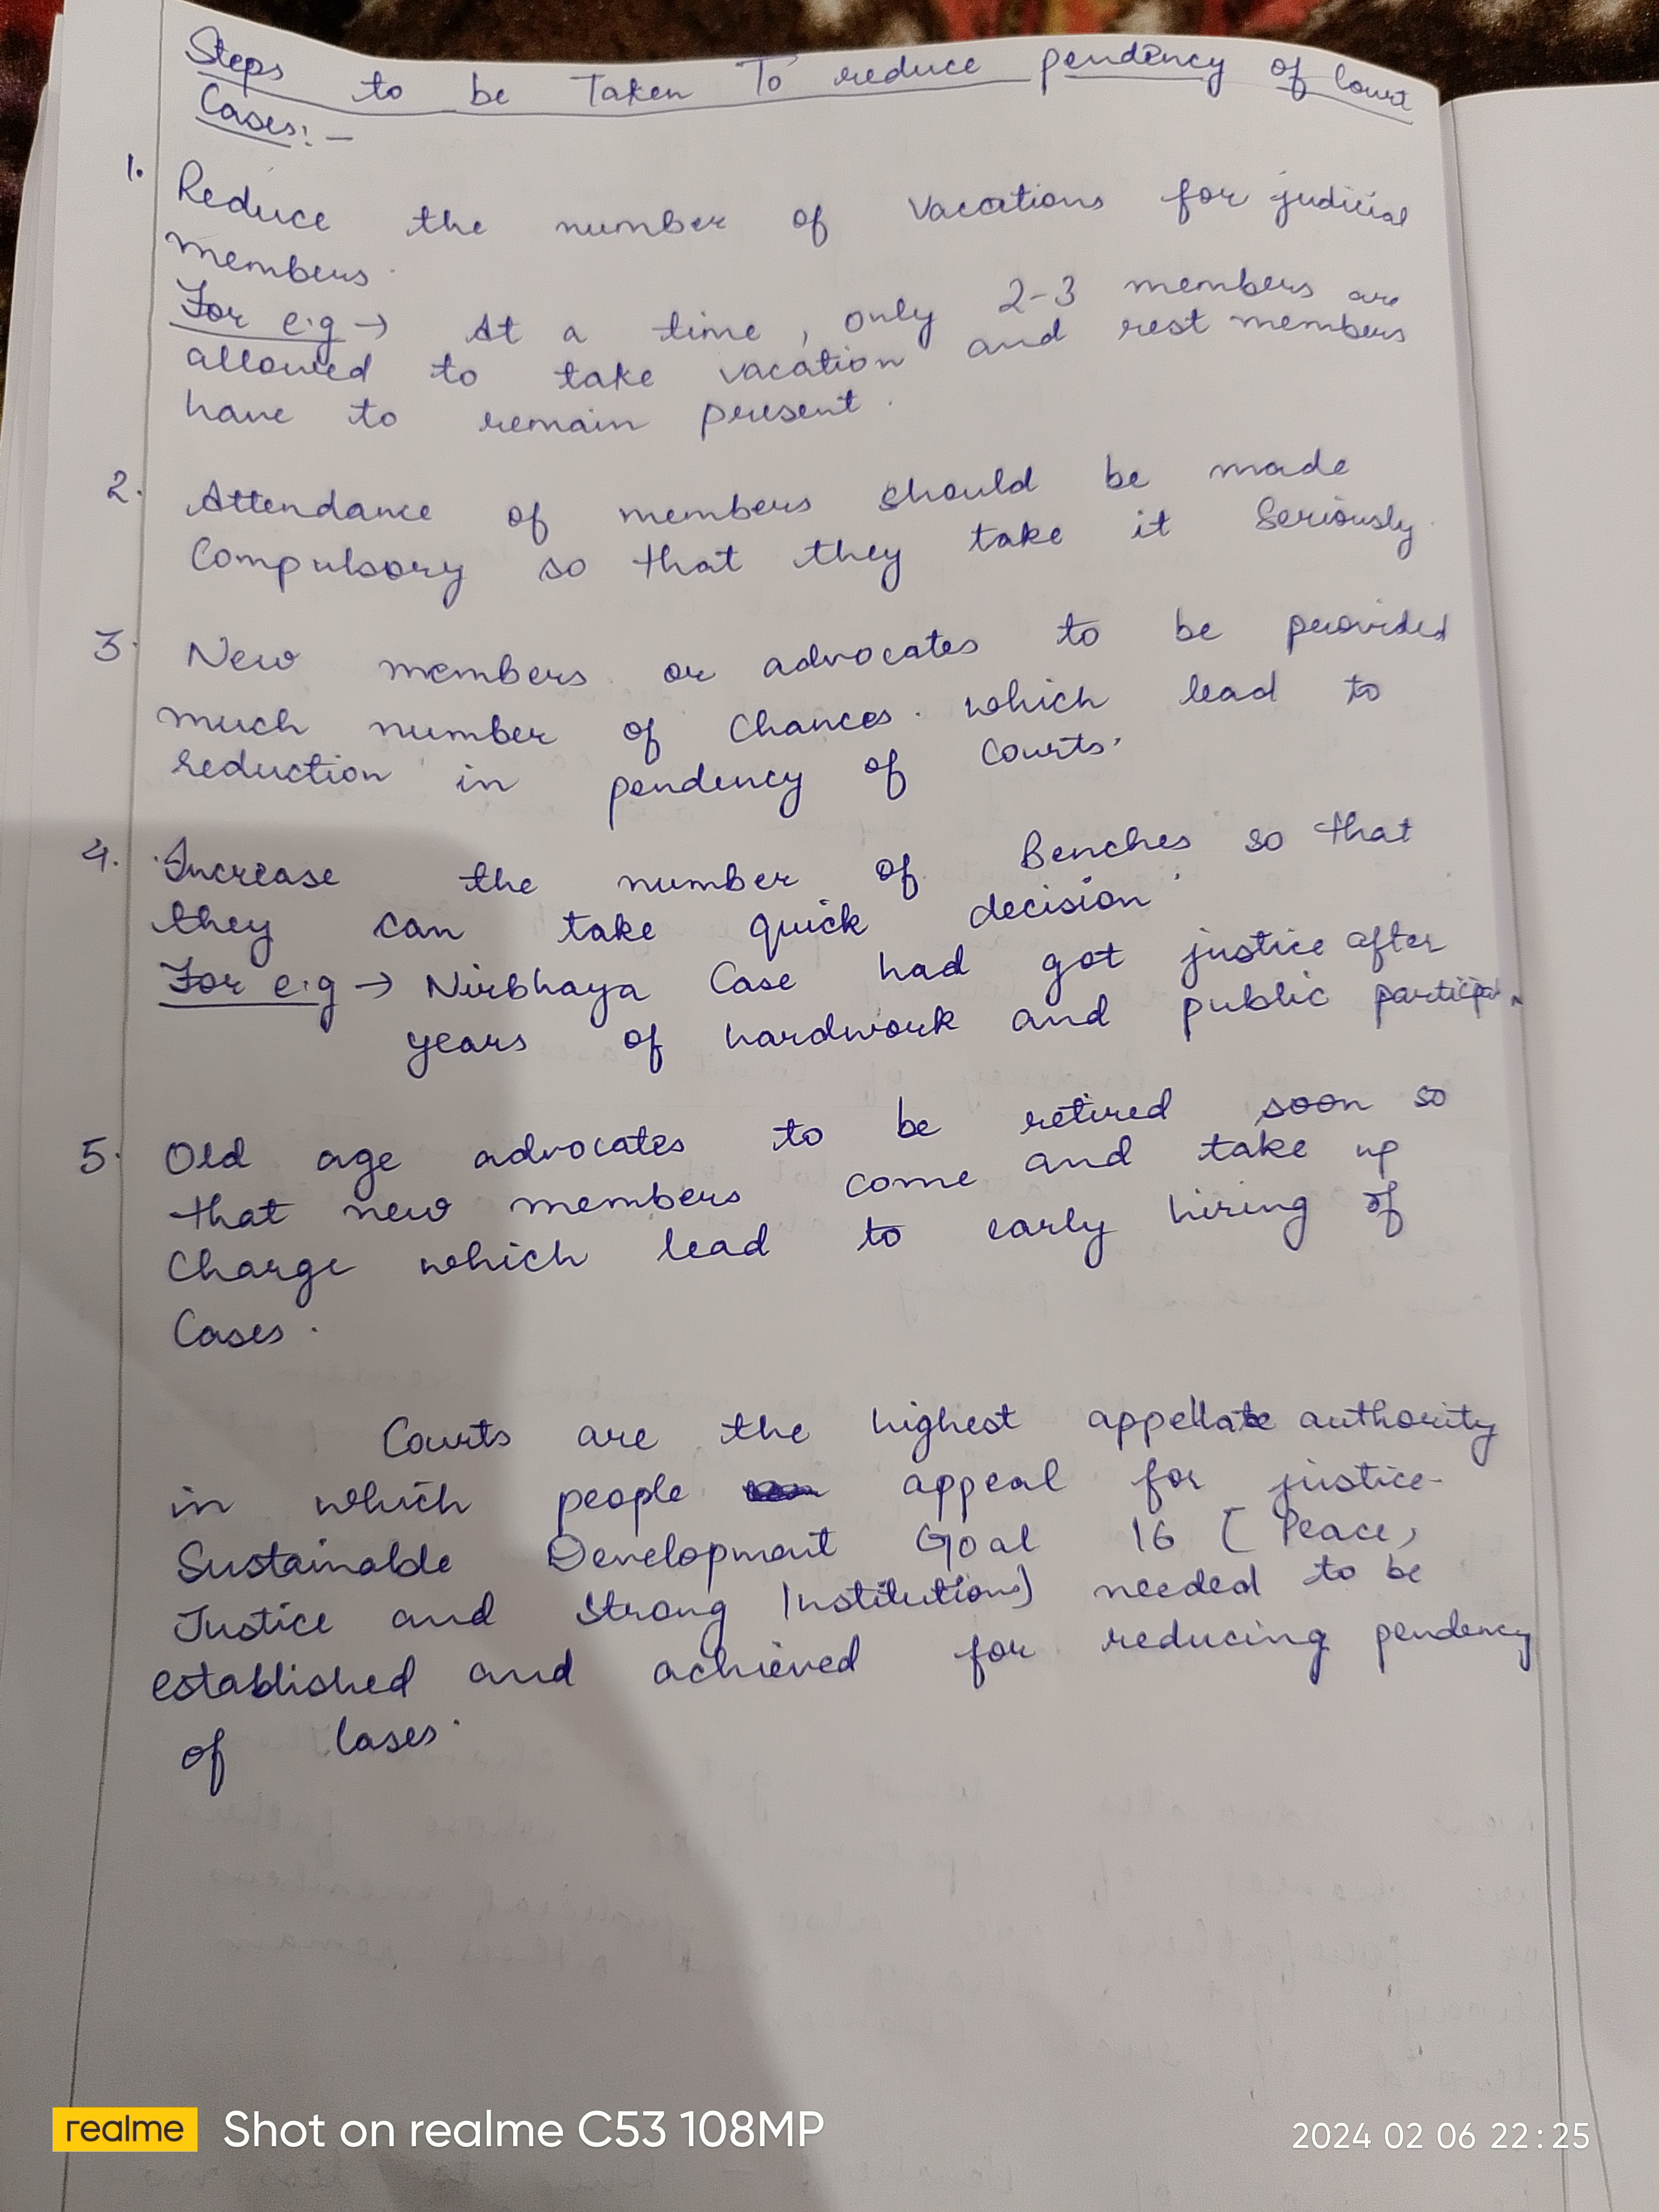 Steps to be Taken To reduce pendency of Court
Cases:-
1. Reduce the number of vacations for judicial
members.
For e.g → At a time, only 2-3 members are
allowed to take vacation and rest members
have to remain present.
2. Attendance of members should be made
Compulsory so that they take it Seriously.
3. New members or advocates to be provided
much number of Chances. which lead to
reduction in pendency of Courts.
4. Increase the number of Benches so that
they can take quick decision.
For e.g → Nirbhaya Case had got justice after
years of hardwork and public
5. Old age advocates to be retired soon so
that new members come and take up
Charge which lead to early hiring of
Cases.
Courts are the highest appellate authority
in which people appeal for justice.
Sustainable Development Goal 16 [Peace,
Justice and Strong Institutions] needed to be
established and achieved for reducing pendency
of Cases.
realme Shot on realme C53 108MP
2024 02 06 22:25